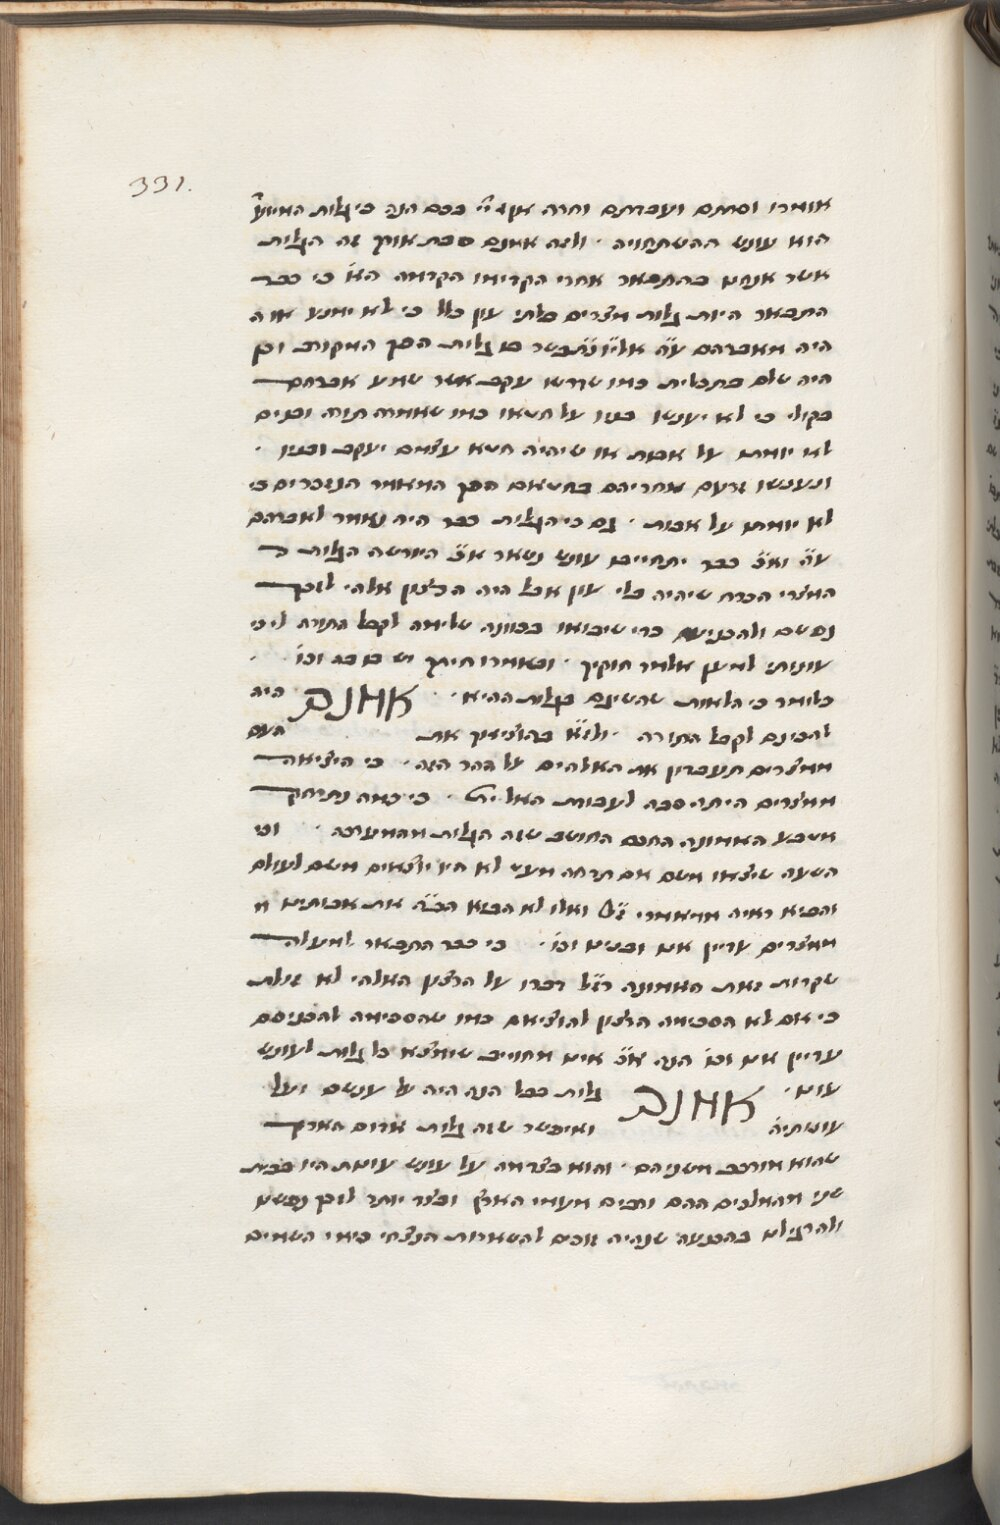 331.
אומרו וסרתם ועבדתם וחרה אף יי בכם הנה כי גלות האיוע
הוא עונש ההשתחויה . ולזה אמנם סבת אורך זה הגלות
אשר אנחנו בהתבאר אחרי הקדימו הקדמה הא כי כבר
התבאר היות גלות מצרים בלתי עון כלל כי לא ימנע אם
היה מאברהם ע״ה בו גלות הפך המקובל וכן
היה שלם בתכלית כמו שדרשו עקב אשר שמע אברהם
בקולי כי לא יענשו בניו על חטאו כמו שאמרה תורה ובנים
לא יומתו על אבות או שיהיה חטא עצמם יעקב ובניו .
ונענשו זרעם אחריהם בחטאם הפך המאמר הנזכר בנים כי
לא יומתו על אבות . גם כי הגלות כבר היה נאמר לאברהם
ע״ה וא״כ כבר יתחייב עונש נשאר א״כ היורשה הגלות
המצרי הכרח שיהיה בלי עון אבל היה הרצון אלהי לזכך
נפשם ולהכניעם כדי שיבואו בכוונה שלימה לקבל התורה לי כי
עוניתי למען אלמד חוקיך . ובאמרו חיתך יש בו בה וכו .
כלומר כי הלאות שהשיגם בגלות ההיא . אמנם היה
להכינם לקבל התורה . ולז״א בהוציאך את העם
ממצרים תעבדון את האלהים על ההר הזה . כי היציאה
ממצרים היתה סבה לעבודת האל ית׳ . כי כאמה נתרחק
מטבע האמונה החכם החושב שזה הגלות מהמערכה . וכי
השעה שיצאו משם אם תרחה מעט לא היו יוצאים משם לעולם
והביא ראיה ממאמר ז״ל ואלו לא הוציא הב״ה את אבותינו מ
ממצרים עדיין אנו ובנינו וכו . כי כבר התבאר למעלה
שקרות זאת האמונה רז״ל דברו על הרצון האלהי לא זולת
כי אם לא הסכימה הרצון להוציאם כמו שהסכימה להכניסם
עדיין אנו וכו הנה א״כ אינו מחוייב שימצא כל גלות לעונש
עון . אמנם גלות בבל הנה היה על עונשם ועל
עושתיה ואיפשר שזה גלות אדום הארוך
שהוא מורכב משניהם . והוא בצדמה על עונש עונות היו בבית
שני מהמלכים ההם ורבים מעמי הארץ ובצד יותר לזכך נפשנו
ולהרגילנו בהכנעה שנהיה זוכים להשארות הנצחי כימי השמים